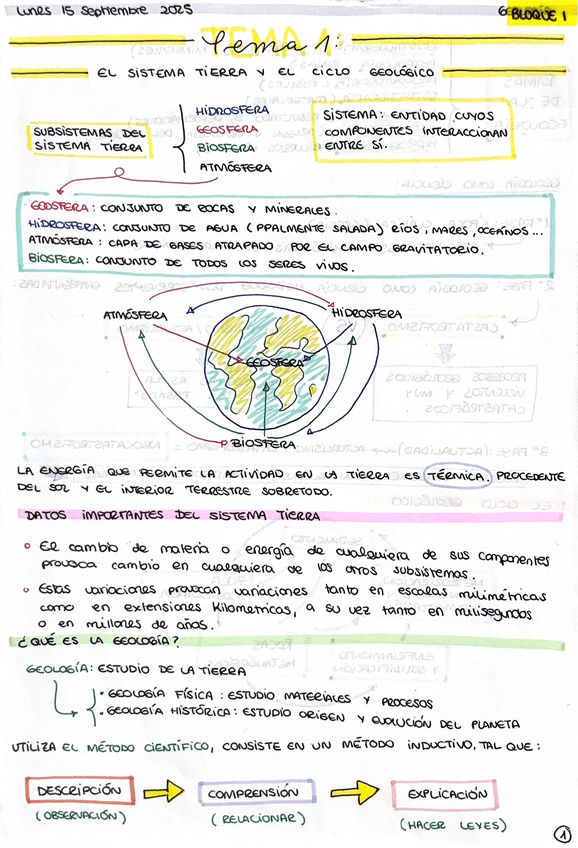 Lunes 15 Septiembre 2025
BLOQUE 1
Tema 1:
EL SISTEMA TIERRA Y EL CICLO GEOLÓGICO
SUBSISTEMAS DEL
SISTEMA TIERRA
HIDROSFERA
GEOSFERA
BIOSFERA
ATMÓSFERA
SISTEMA: ENTIDAD CUYOS
COMPONENTES INTERACCIONAN
ENTRE SÍ.
GEOSFERA: CONJUNTO DE ROCAS Y MINERALES.
HIDROSFERA: CONJUNTO DE AGUA (PPALMENTE SALADA) RÍOS, MARES, OCEÁNOS...
ATMÓSFERA: CAPA DE GASES ATRAPADO POR EL CAMPO GRAVITATORIO.
BIOSFERA: CONJUNTO DE TODOS LOS SERES VIVOS.
ATMÓSFERA
HIDROSFERA
GEOSFERA
BIOSFERA
LA ENERGÍA QUE PERMITE LA ACTIVIDAD EN LA TIERRA ES TÉRMICA. PROCEDENTE
DEL SOL Y EL INTERIOR TERRESTRE SOBRETODO.
DATOS IMPORTANTES DEL SISTEMA TIERRA
El cambio de materia o energía de cualquiera de sus componentes
provoca cambio en cualquiera de los otros subsistemas.
Estas variaciones provocan variaciones tanto en escalas milimétricas
como en extensiones kilometricas, a su vez tanto en milisegundos
o en millones de años.
¿QUÉ ES LA GEOLOGÍA?
GEOLOGÍA: ESTUDIO DE LA TIERRA
· GEOLOGÍA FÍSICA: ESTUDIO MATERIALES Y PROCESOS
· GEOLOGÍA HISTÓRICA: ESTUDIO ORIGEN Y EVOLUCIÓN DEL PLANETA
UTILIZA EL MÉTODO CIENTÍFICO, CONSISTE EN UN MÉTODO INDUCTIVO, TAL QUE:
DESCRIPCIÓN
COMPRENSIÓN
EXPLICACIÓN
(OBSERVACIÓN)
(RELACIONAR)
(HACER LEYES)
1